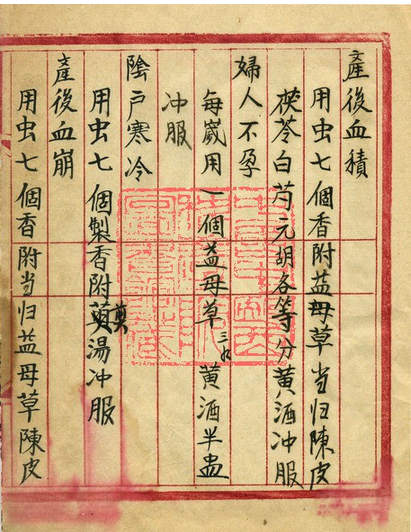 產後血積
用虫七個香附益母草当归陳皮
茯苓白芍元胡各等分黄酒冲服
婦人不孕
每嵗用一個益母草三錢黄酒半盅
冲服
陰戶寒冷
用虫七個製香附煎湯冲服
產後血崩
用虫七個香附当归益母草陳皮